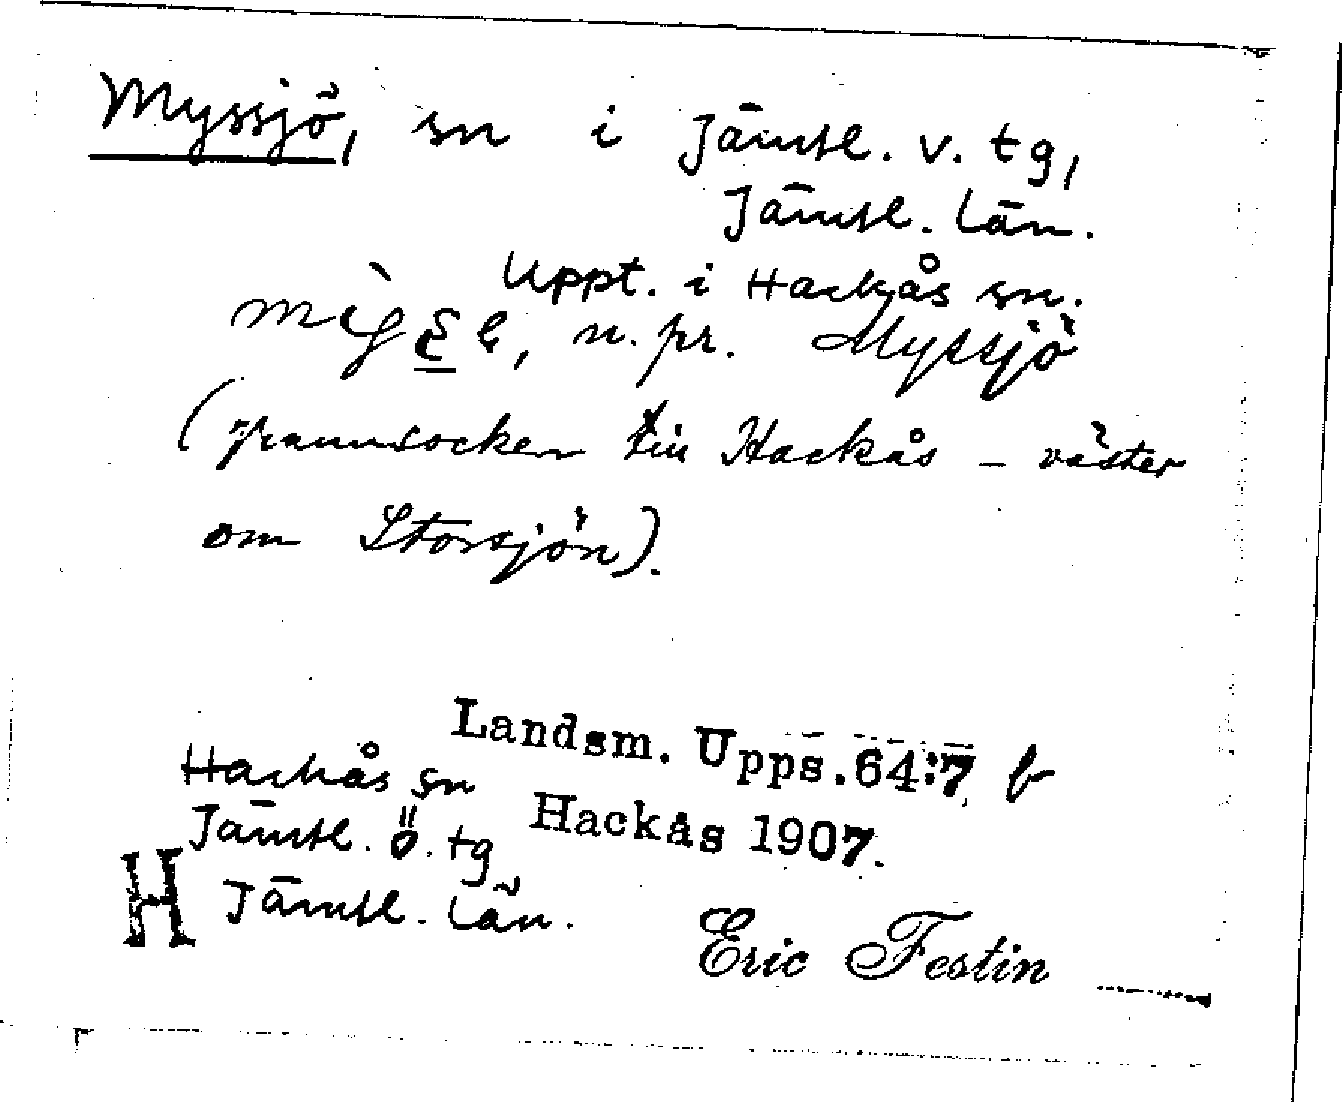 Myssjö, sn i Jämtl. v. tg,
Jämtl. län.
Uppt. i Hackås sn.
n. pr. Myssjö
(grannsocken till Hackås – väster
om Storsjön).
Landsm. Upps. 64:7 b
Hackås 1907.
Hackås sn
Jämtl. ö. tg
H Jämtl. län.
Eric Festin